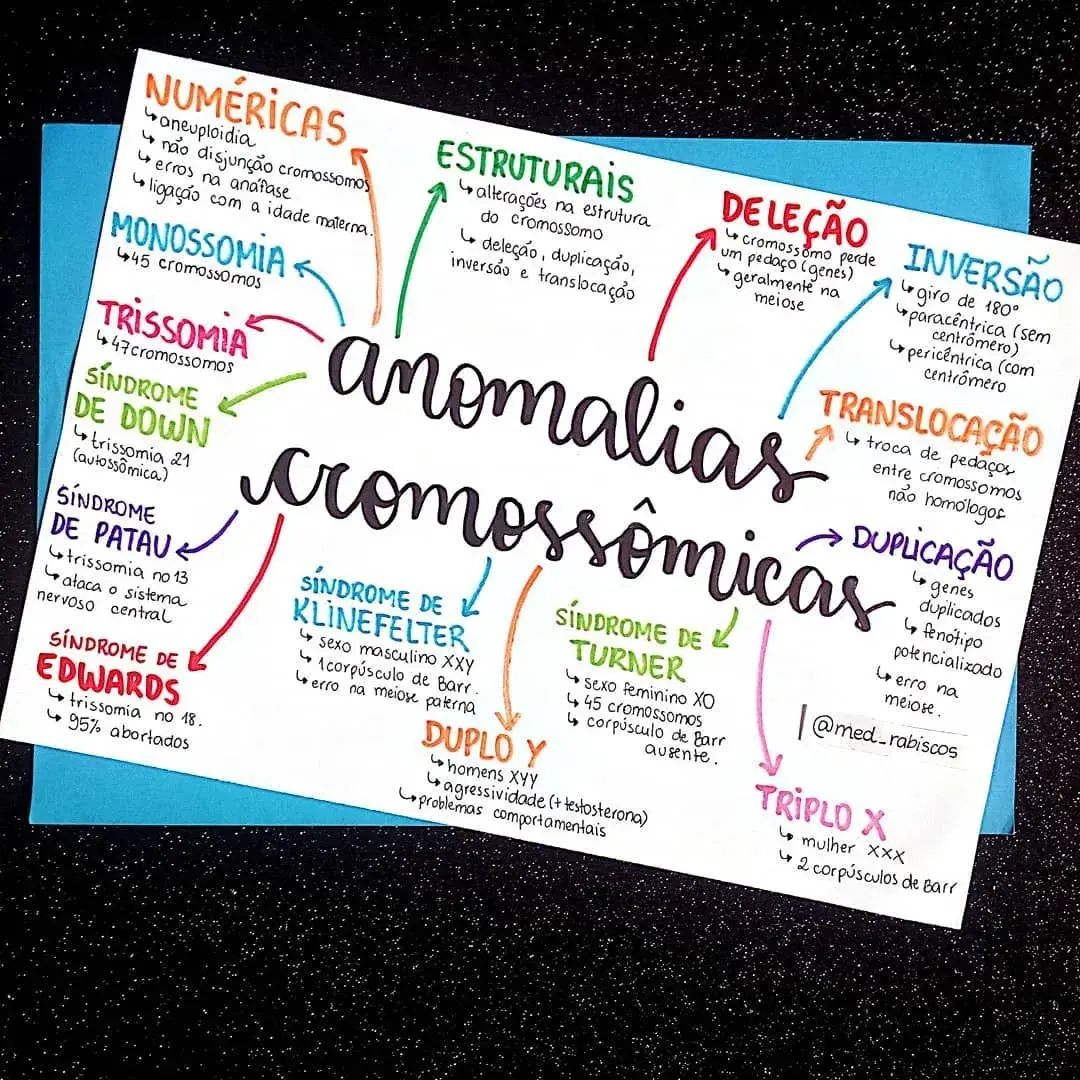 NUMÉRICAS
↳ aneuploidia
↳ não disjunção cromossomos
↳ erros na anáfase
↳ ligação com a idade materna.
MONOSSOMIA
↳ 45 cromossomos
TRISSOMIA
↳ 47 cromossomos
SÍNDROME
DE DOWN
↳ trissomia 21
(autossômica)
SÍNDROME
DE PATAU
↳ trissomia no 13
↳ ataca o sistema
nervoso central
SÍNDROME DE
EDWARDS
↳ trissomia no 18.
↳ 95% abortados
ESTRUTURAIS
↳ alterações na estrutura
do cromossomo
↳ deleção, duplicação,
inversão e translocação
DELEÇÃO
↳ cromossomo perde
um pedaço (genes)
↳ geralmente na
meiose
INVERSÃO
↳ giro de 180°
↳ paracêntrica (sem
centrômero)
↳ pericêntrica (com
centrômero
anomalias
cromossômicas
TRANSLOCAÇÃO
↳ troca de pedaços
entre cromossomos
não homólogos
DUPLICAÇÃO
↳ genes
duplicados
↳ fenótipo
potencializado
↳ erro na
meiose.
SÍNDROME DE
KLINEFELTER
↳ sexo masculino XXY
↳ 1 corpúsculo de Barr.
↳ erro na meiose paterna
DUPLO Y
↳ homens XYY
↳ agressividade (+ testosterona)
↳ problemas comportamentais
SÍNDROME DE
TURNER
↳ sexo feminino XO
↳ 45 cromossomos
↳ corpúsculo de Barr
ausente.
TRIPLO X
↳ mulher XXX
↳ 2 corpúsculos de Barr
@med_rabiscos